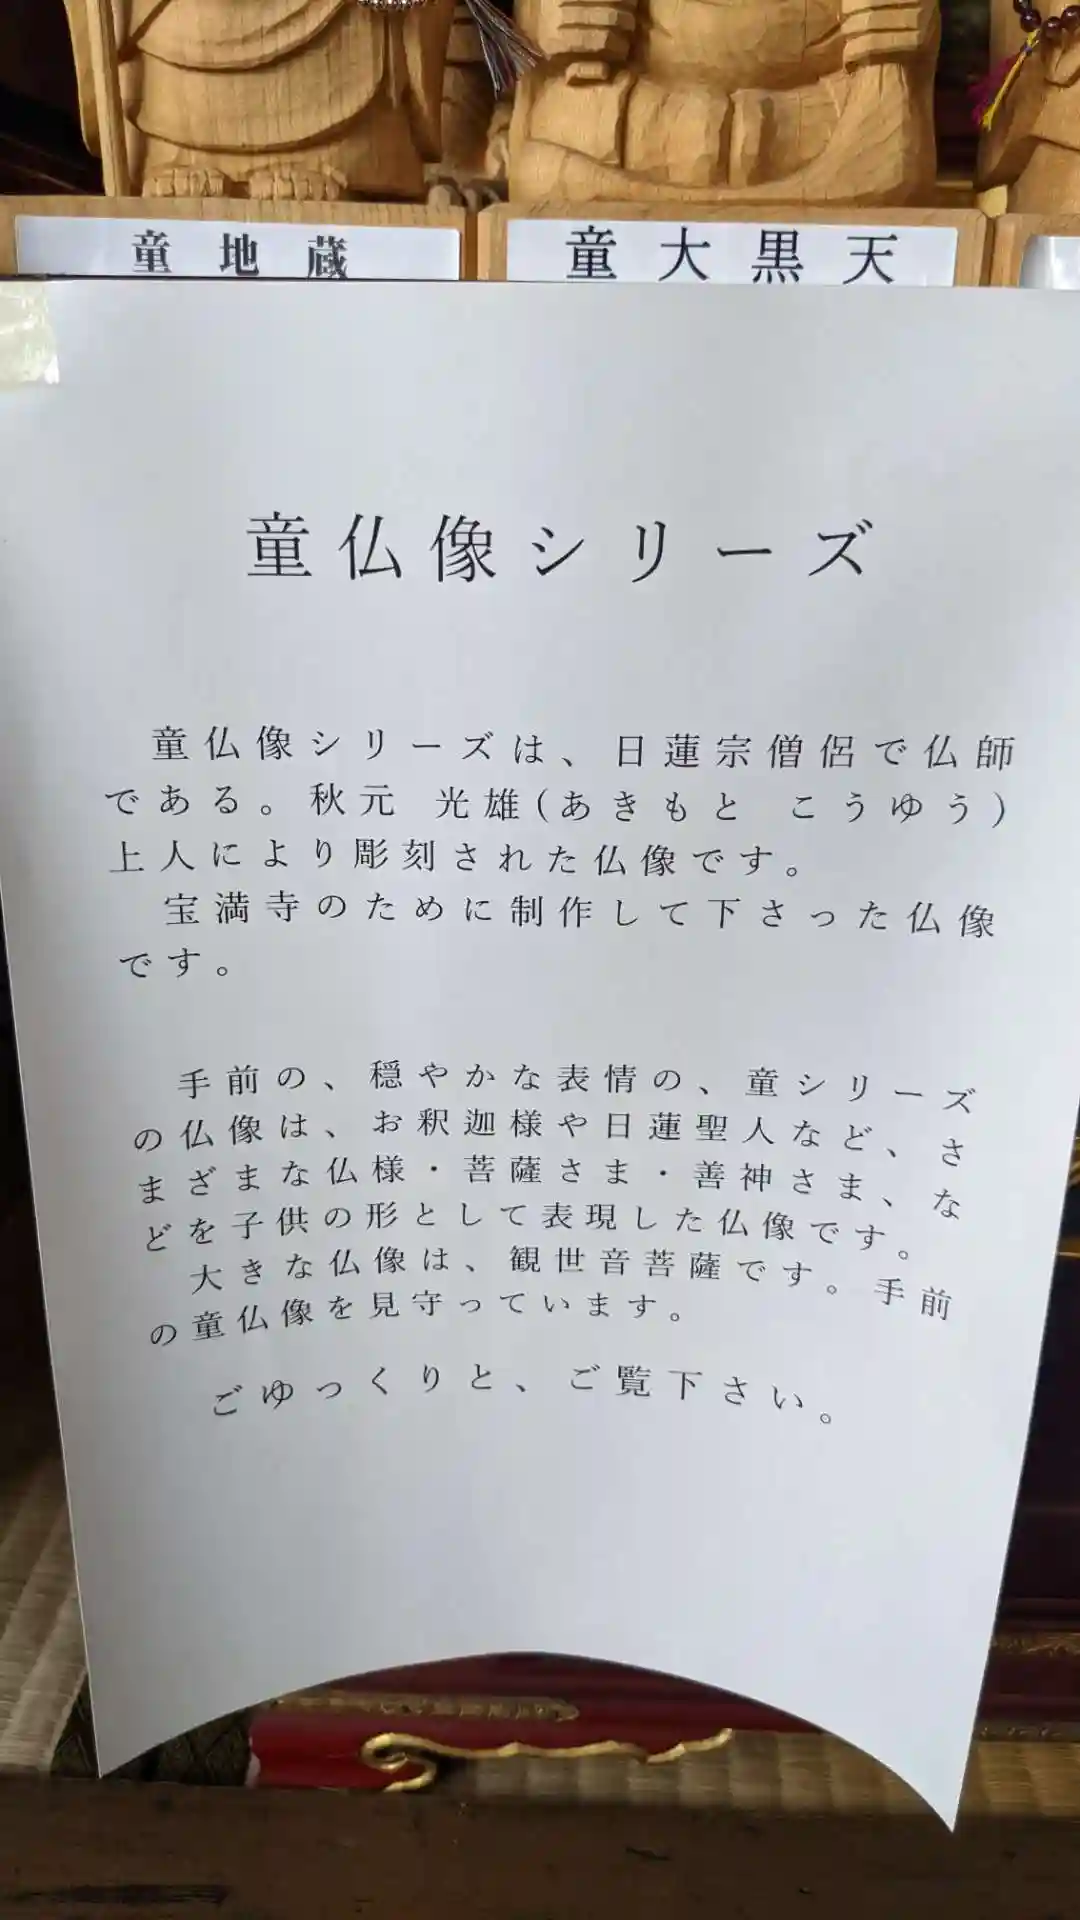 童地蔵
童大黒天
童仏像シリーズ
童仏像シリーズは、日蓮宗僧侶で仏師
である。秋元 光雄(あきもと こうゆう)
上人により彫刻された仏像です。
宝満寺のために制作して下さった仏像
です。
手前の、穏やかな表情の、童シリーズ
の仏像は、お釈迦様や日蓮聖人など、さ
まざまな仏様・菩薩さま・善神さま、な
どを子供の形として表現した仏像です。
大きな仏像は、観世音菩薩です。手前
の童仏像を見守っています。
ごゆっくりと、ご覧下さい。